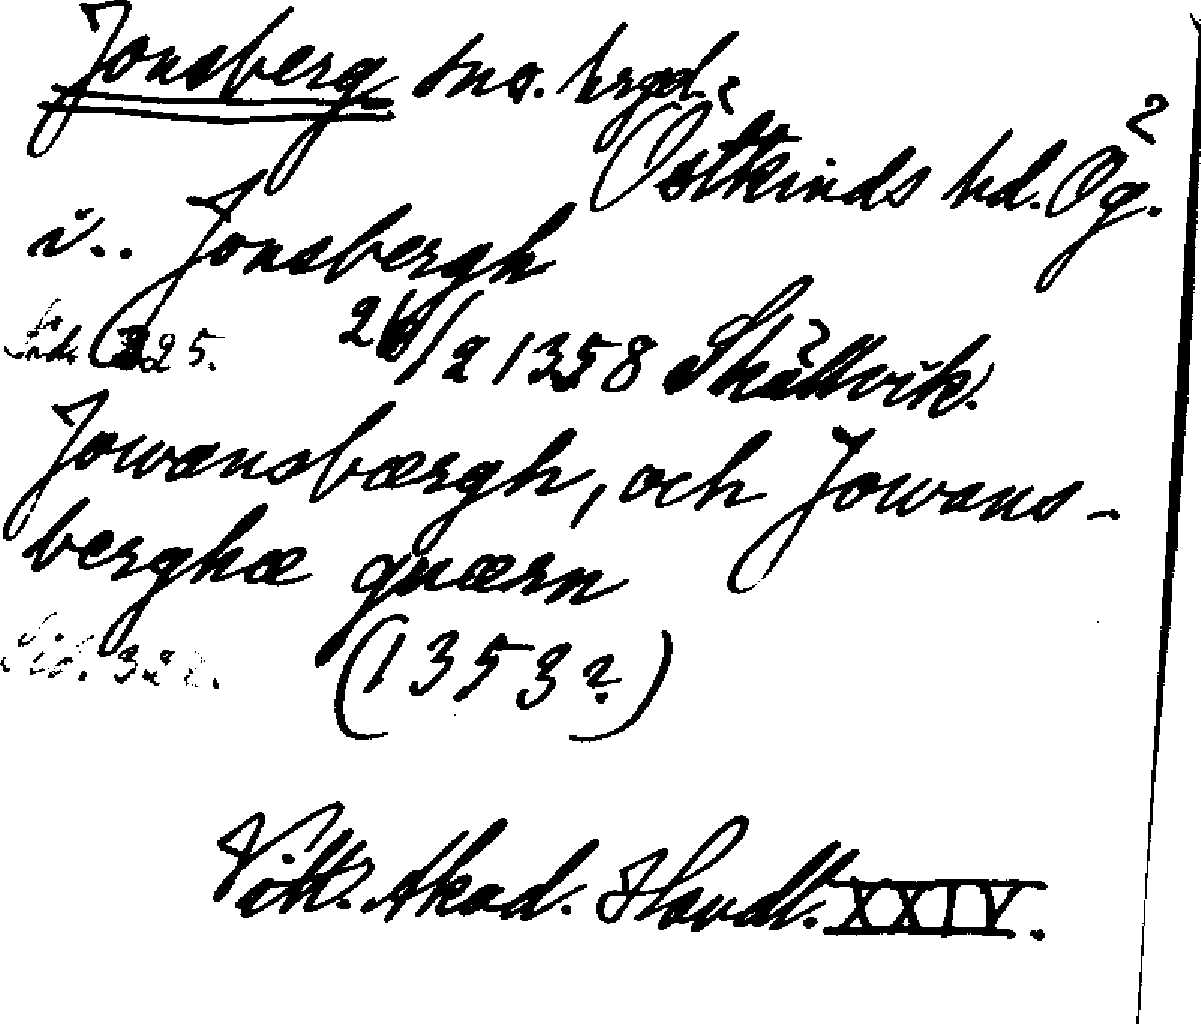 Jonsberg sns. hrgd.
Östkinds hd. Ög.
i.. Jonsbergh
Sid. 325. 26/2 1358 Skällvik.
Jowænsbærgh, och Jowans-
berghæ quærn
Sid. 322. (1353?)
Vitt. Akad. Handl. XXIV.